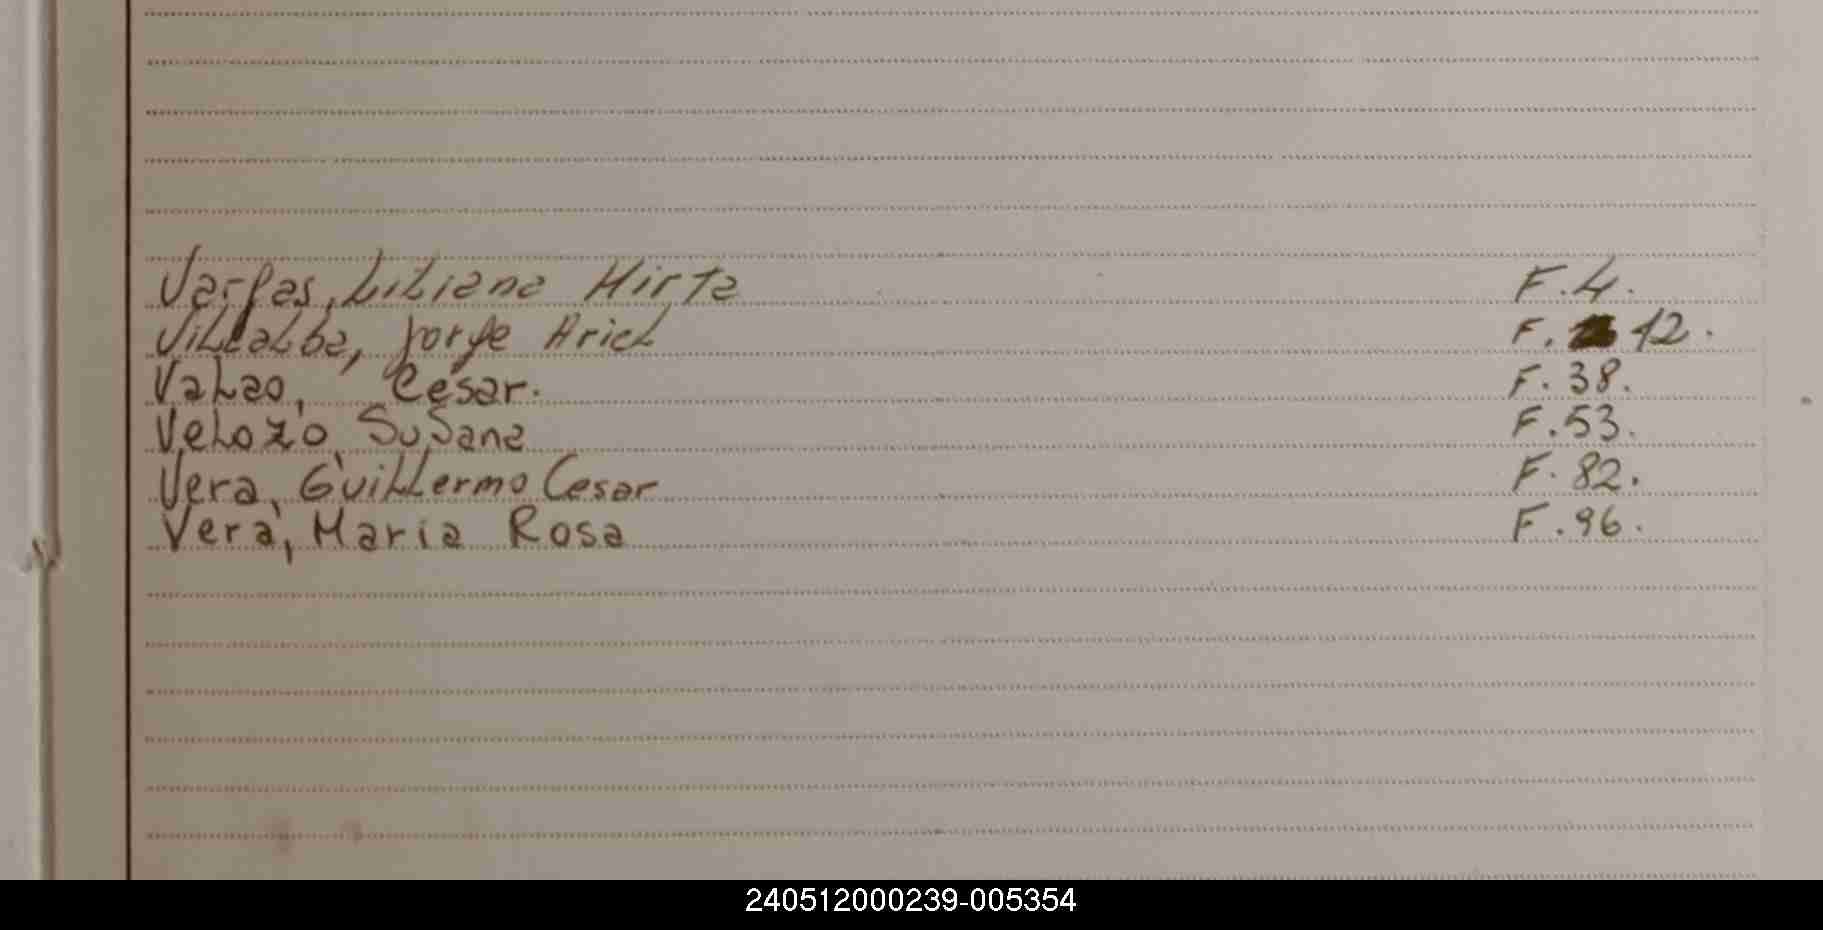 Vargas, Liliana Mirta F.4.
Villalba, Jorge Ariel F. 12.
Valao, Cesar. F. 38.
Velozo, Susana F.53.
Vera, Guillermo Cesar F. 82.
Vera, Maria Rosa F.96.
240512000239-005354